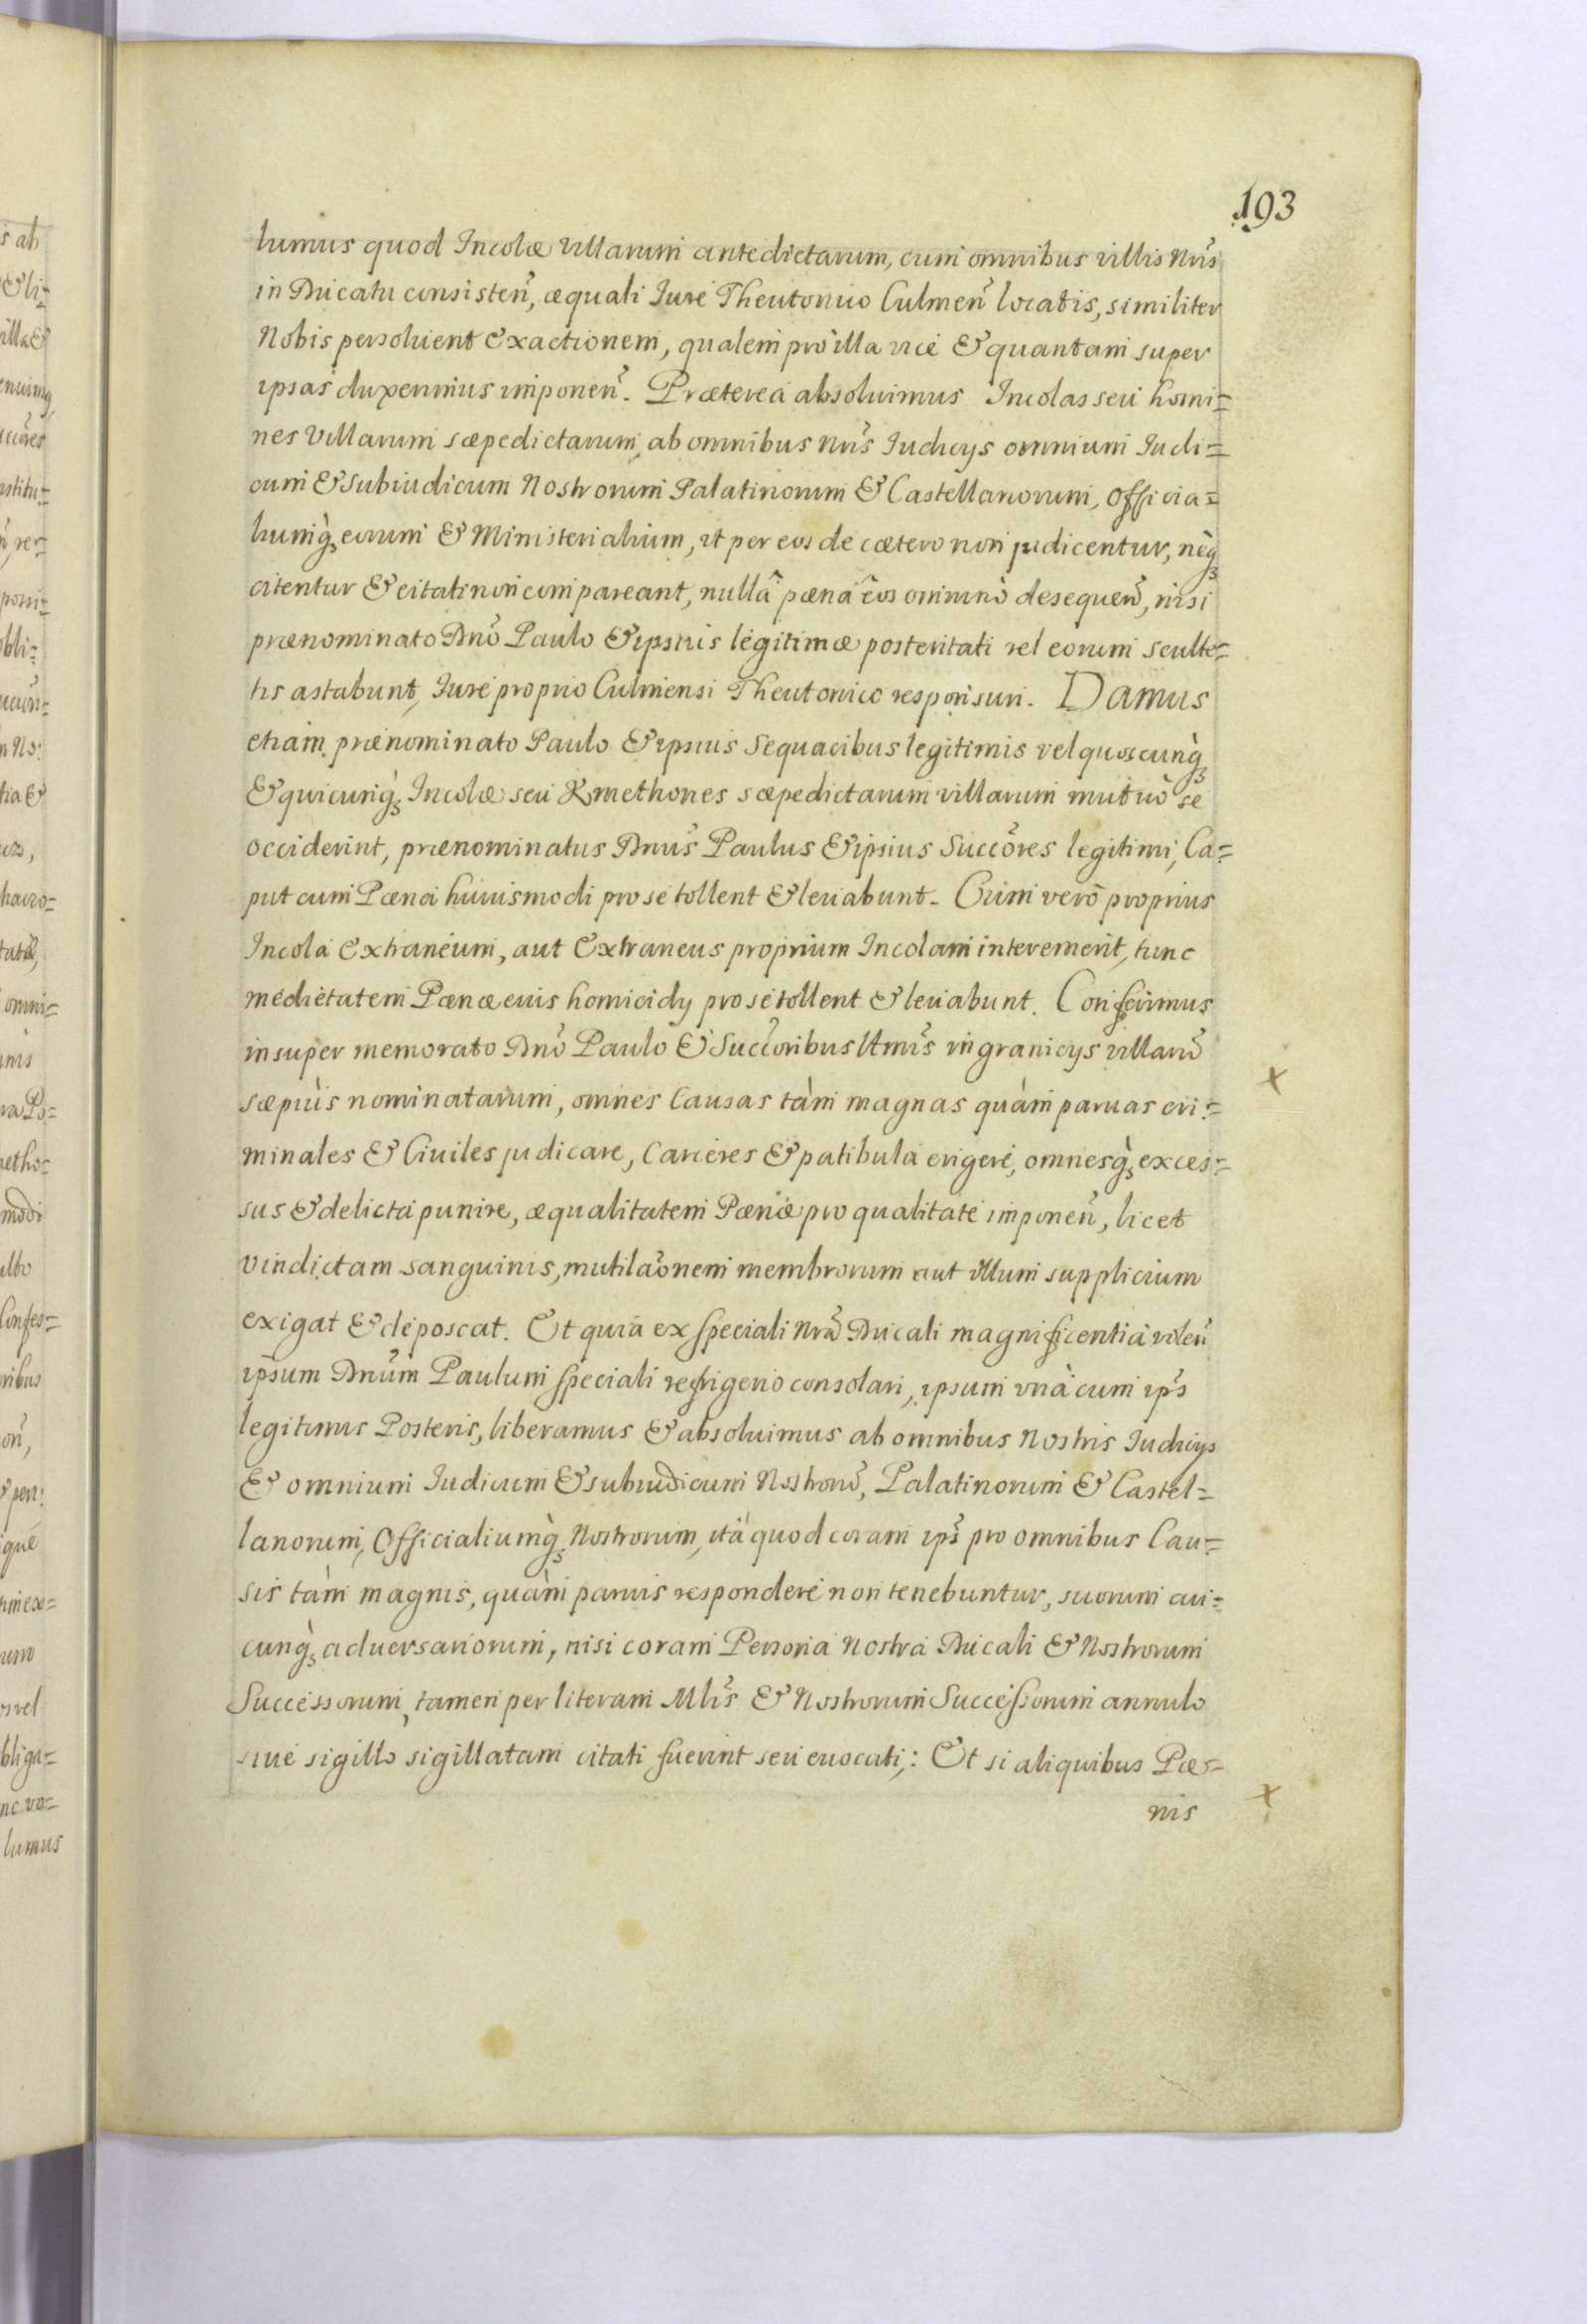 193
lumus quod Incolæ Villarum antedictarum, cum omnibus villis Nr̃is
in Ducatu consisteñ, æquali Iure Theutonico Culmeñ locatis, similiter
Nobis persoluent exactionem, qualem pro illa vice & quantam super
ipsas duxerimus imponeñ. Præterea absoluimus Incolas seu homi=
nes Villarum sæpedictarum, ab omnibus Nr̃is Iudicijs omnium Iudi=
cum & Subiudicum Nostrorum Palatinorum & Castellanorum, Officia=
liumq̀ꝫ eorum & Ministerialium, vt per eos de cætero non judicentur, neq̀ꝫ
citentur & citati non compareant, nullâ pæna eos omninò desequeñ, nisi
prænominato Dnõ Paulo & ipsius legitimæ posteritati vel eorum Sculte=
tis astabunt, Iure proprio Culmensi Theutonico responsuri. Damus
etiam prænominato Paulo & ipsius Sequacibus legitimis vel quoscunq̀ꝫ
& quicunq̀ꝫ Incolæ seu Kmethones sæpedictarum villarum mutuò se
occiderint, prænominatus Dnũs Paulus & ipsius Succõres legitimi, Ca=
put cum Pæna huiusmodi pro se tollent & leuabunt. Cum verò proprius
Incola Extraneum, aut Extraneus proprium Incolam interemerit, tunc
medietatem Pænæ eius homicidij pro se tollent & leuabunt. Conferimus
insuper memorato Dnõ Paulo & Succõribus ltmĩs in granicijs villarũ
sæpiùs nominatarum, omnes Causas tàm magnas quàm paruas cri=
minales & Ciuiles judicare, Carceres & patibula erigere, omnesq̀ꝫ exces=
sus & delicta punire, æqualitatem Pænæ pro qualitate imponeñ, licet
vindictam sanguinis, mutilaõnem membrorum aut vllum supplicium
exigat & deposcat. Et quia ex speciali Nrã Ducali magnificentia voleñ
ipsum Dnũm Paulum speciali refrigerio consolari, ipsum vnà cum ip̃s
legitimis Posteris, liberamus & absoluimus ab omnibus Nostris Iudicijs
& omnium Iudicum & subiudicum Nostrorũ, Palatinorum & Castel=
lanorum, Officialiumq̀ꝫ Nostrorum, ità quod coram ip̃s pro omnibus Cau=
sis tàm magnis, quàm paruis respondere non tenebuntur, suorum cui=
cunq̀ꝫ aduersariorum, nisi coram Persona Nostra Ducali & Nostrorum
Successorum, tamen per literam & Nostrorum Successorum annulo
siue sigillo sigillatam citati fuerint seu euocati,: Et si aliquibus Pæ=
nis